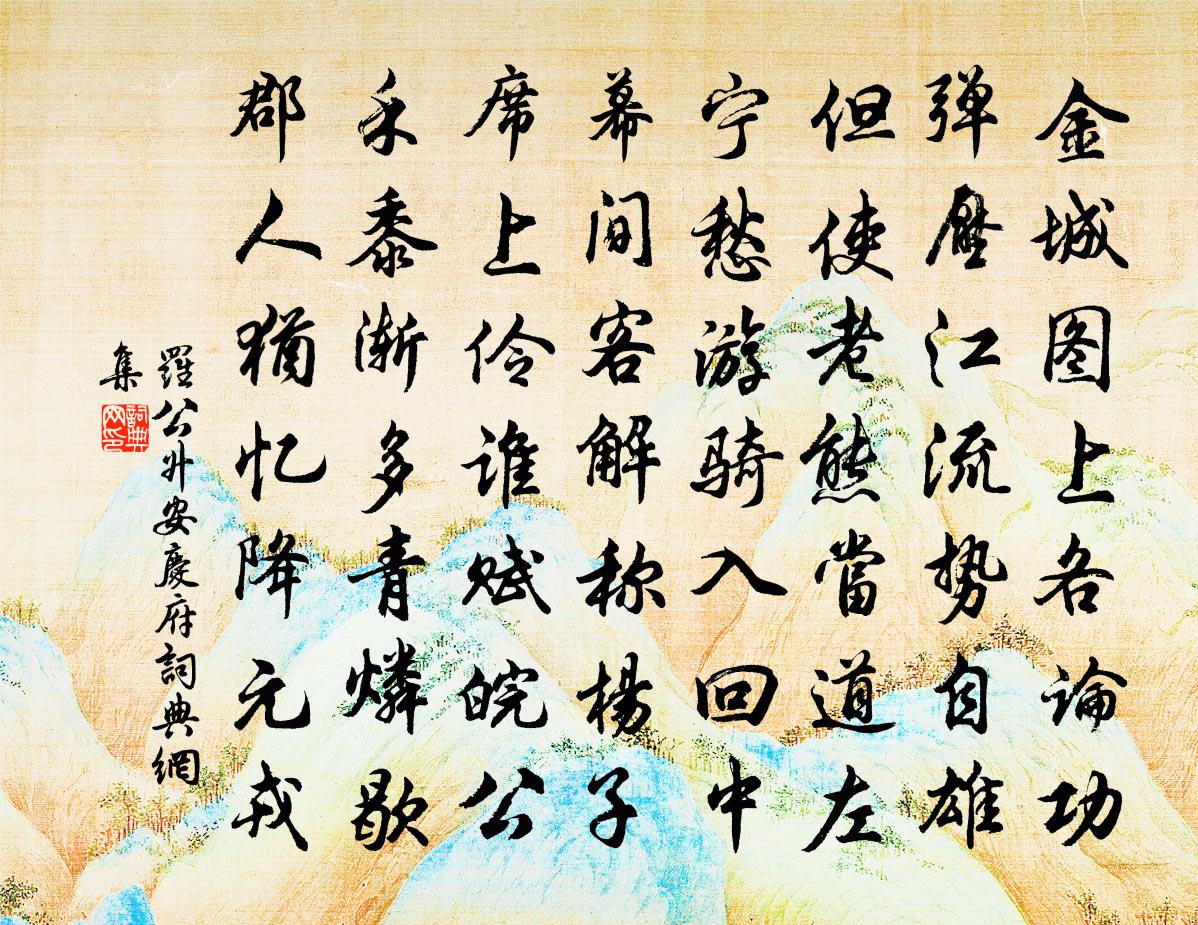 金城图上各论功
弹压江流势自雄
但使老熊當道左
宁愁游骑入回中
幕间客解称杨子
席上伶谁赋皖公
禾黍渐多青燐歇
郡人犹忆降元戎
羅公升安慶府詞典網
集
詞典
网印